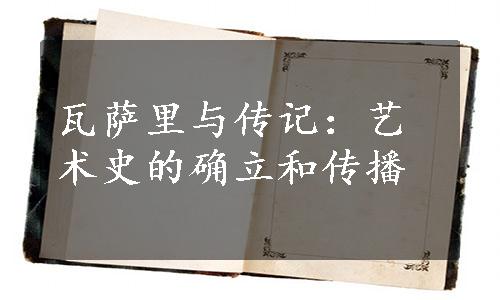 瓦萨里与传记：艺
术史的确立和传播